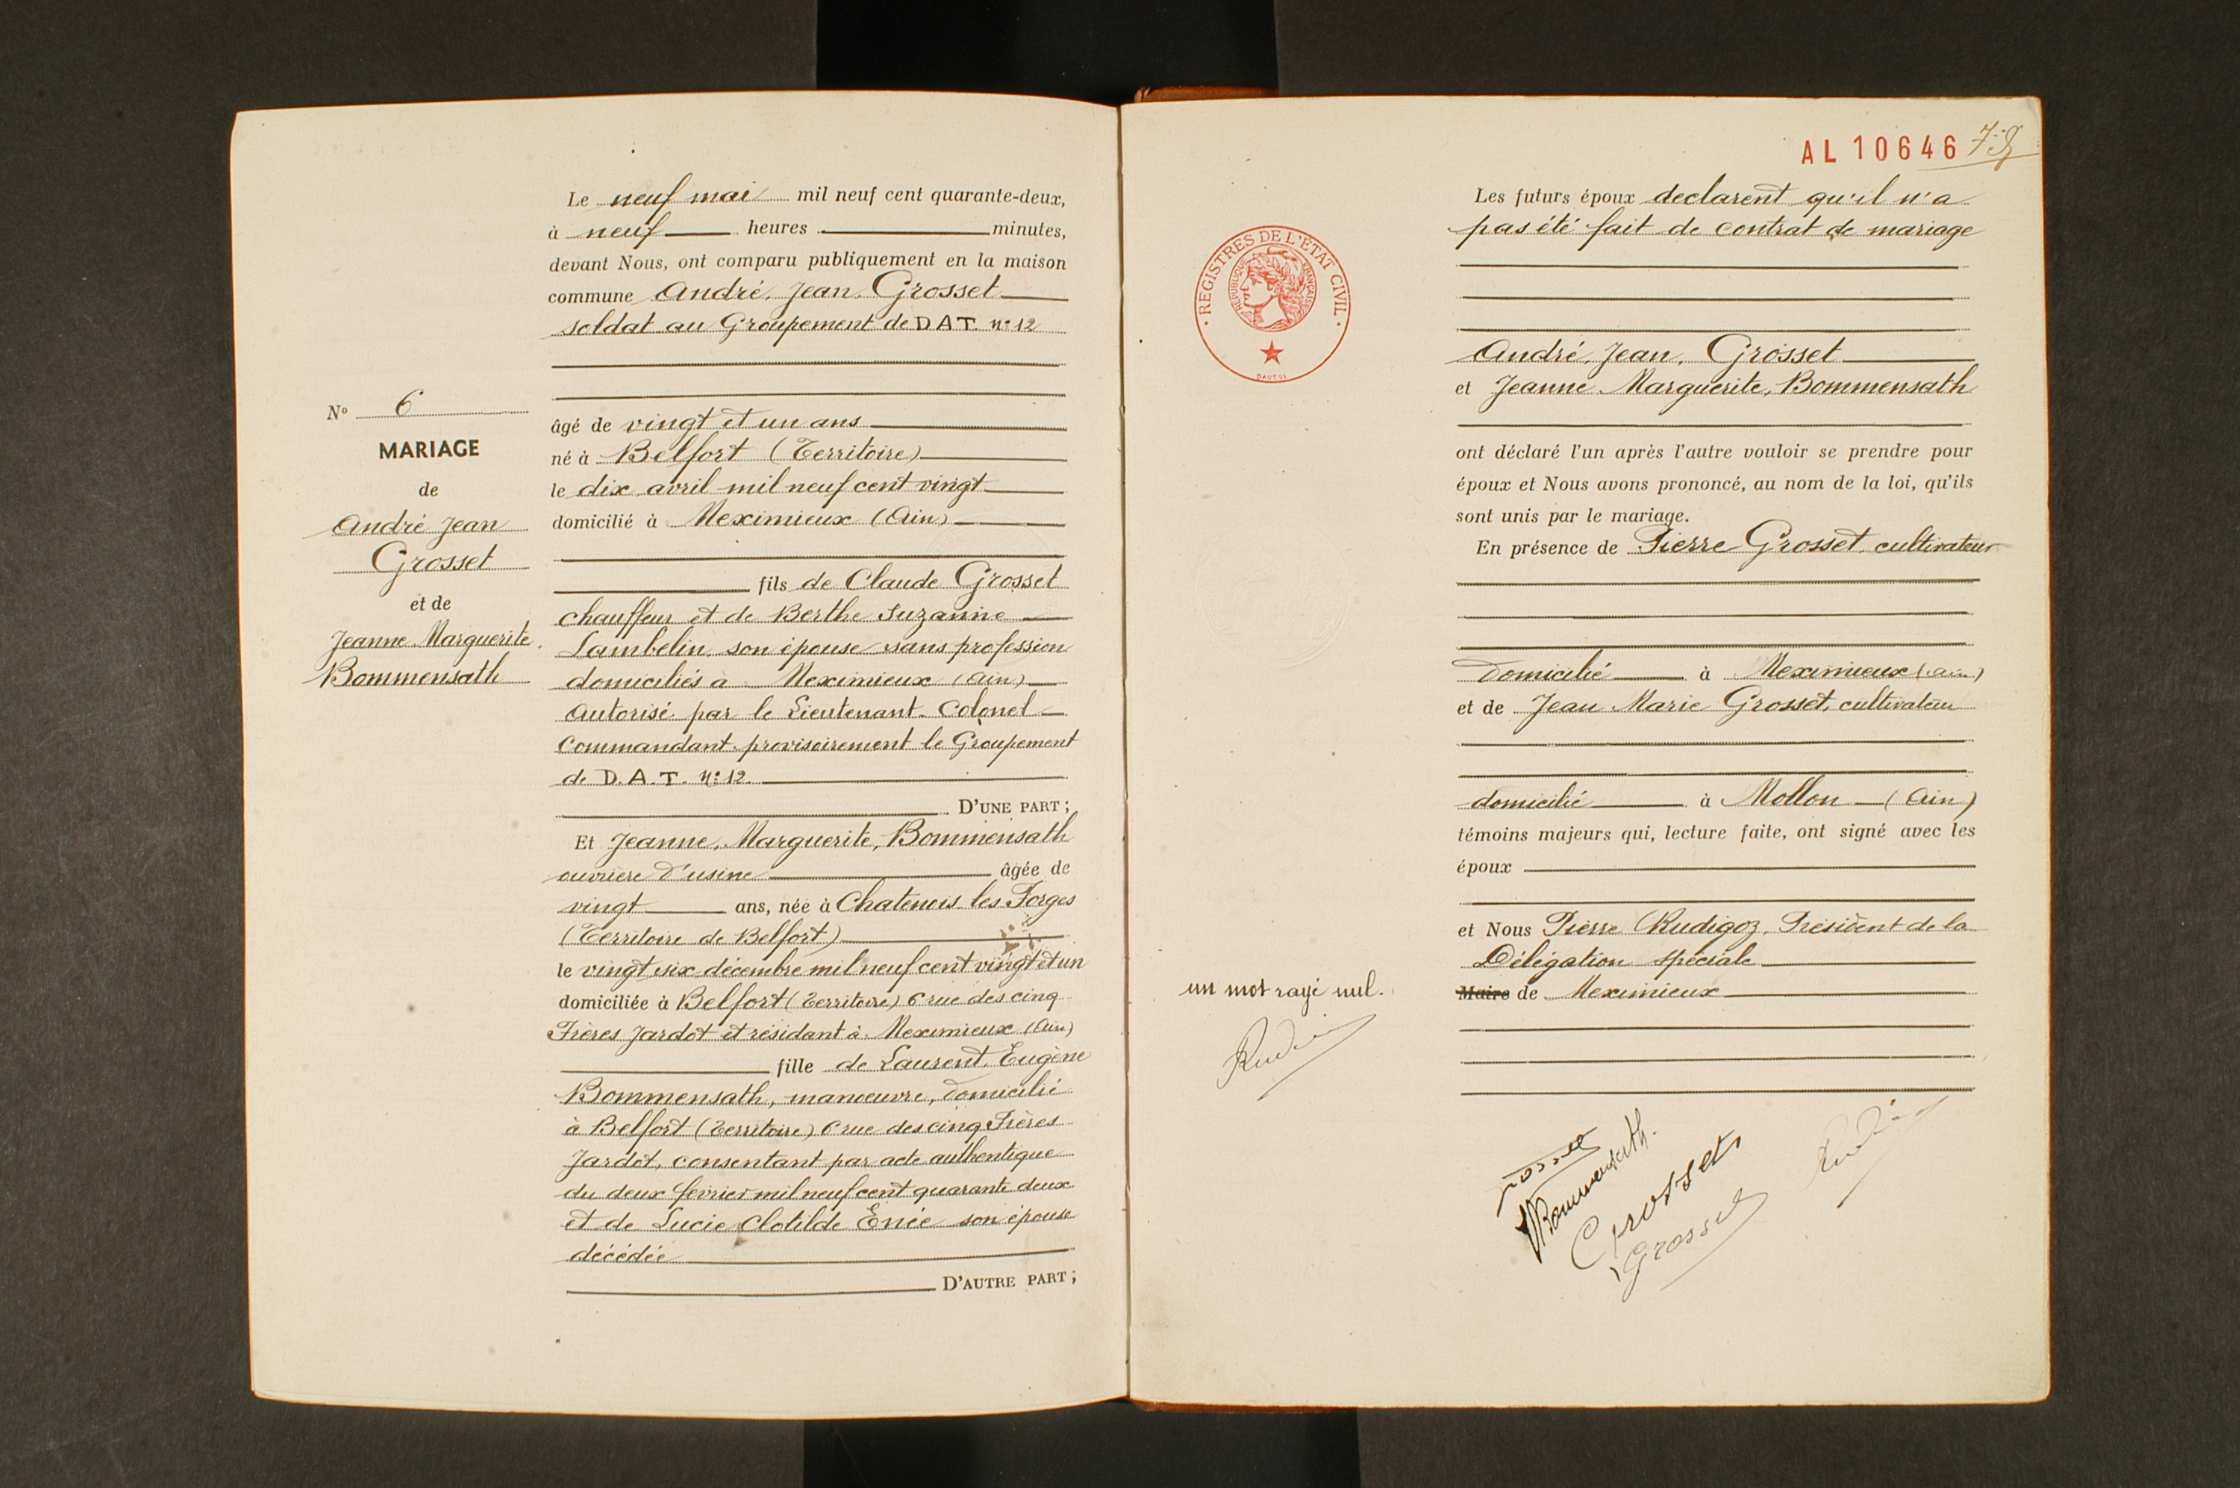 Le neuf mai mil neuf cent quarante-deux,
à neuf heures minutes,
devant Nous, ont comparu publiquement en la maison
commune André, Jean, Grosset
soldat au Groupement de D A T. n° 12
N° 6
MARIAGE
de
André Jean
Grosset
et de
Jeanne Marguerite
Bommensath
âgé de vingt et un ans
né à Belfort (Territoire)
le dix avril mil neuf cent vingt
domicilié à Meximieux (Ain)
fils de Claude Grosset
chauffeur et de Berthe Suzanne
Lambelin son épouse sans profession
domiciliés à Meximieux (Ain)
Autorisé par le Lieutenant-Colonel
Commandant provisoirement le Groupement
de D.A.T. n° 12
D'UNE PART;
Et Jeanne, Marguerite, Bommensath
ouvrière d'usine âgée de
vingt ans, née à Chatenois les Forges
(Territoire de Belfort)
le vingt six décembre mil neuf cent vingt et un
domiciliée à Belfort (Territoire) 6 rue des cinq
Frères Jardot et résidant à Meximieux (Ain)
fille de Laurent, Eugène
Bommensath, manœuvre, domicilié
à Belfort (Territoire) 6 rue des cinq Frères
Jardot, consentant par acte authentique
du deux février mil neuf cent quarante deux
et de Lucie Clotilde Enée son épouse
décédée
D'AUTRE PART;
AL 10646
REGISTRES DE L'ÉTAT CIVIL
RÉPUBLIQUE FRANÇAISE
Les futurs époux declarent qu'il n'a
pas été fait de contrat de mariage
André, Jean, Grosset
et Jeanne Marguerite, Bommensath
ont déclaré l'un après l'autre vouloir se prendre pour
époux et Nous avons prononcé, au nom de la loi, qu'ils
sont unis par le mariage.
En présence de Pierre Grosset, cultivateur
Domicilié à Meximieux (Ain)
et de Jean Marie Grosset, cultivateur
domicilié à Mollon (Ain)
témoins majeurs qui, lecture faite, ont signé avec les
époux
et Nous Pierre Rudigoz, Président de la
Délégation spéciale
Maire de Meximieux
un mot rayé nul.
Bommensath.
Grosset
Grosset